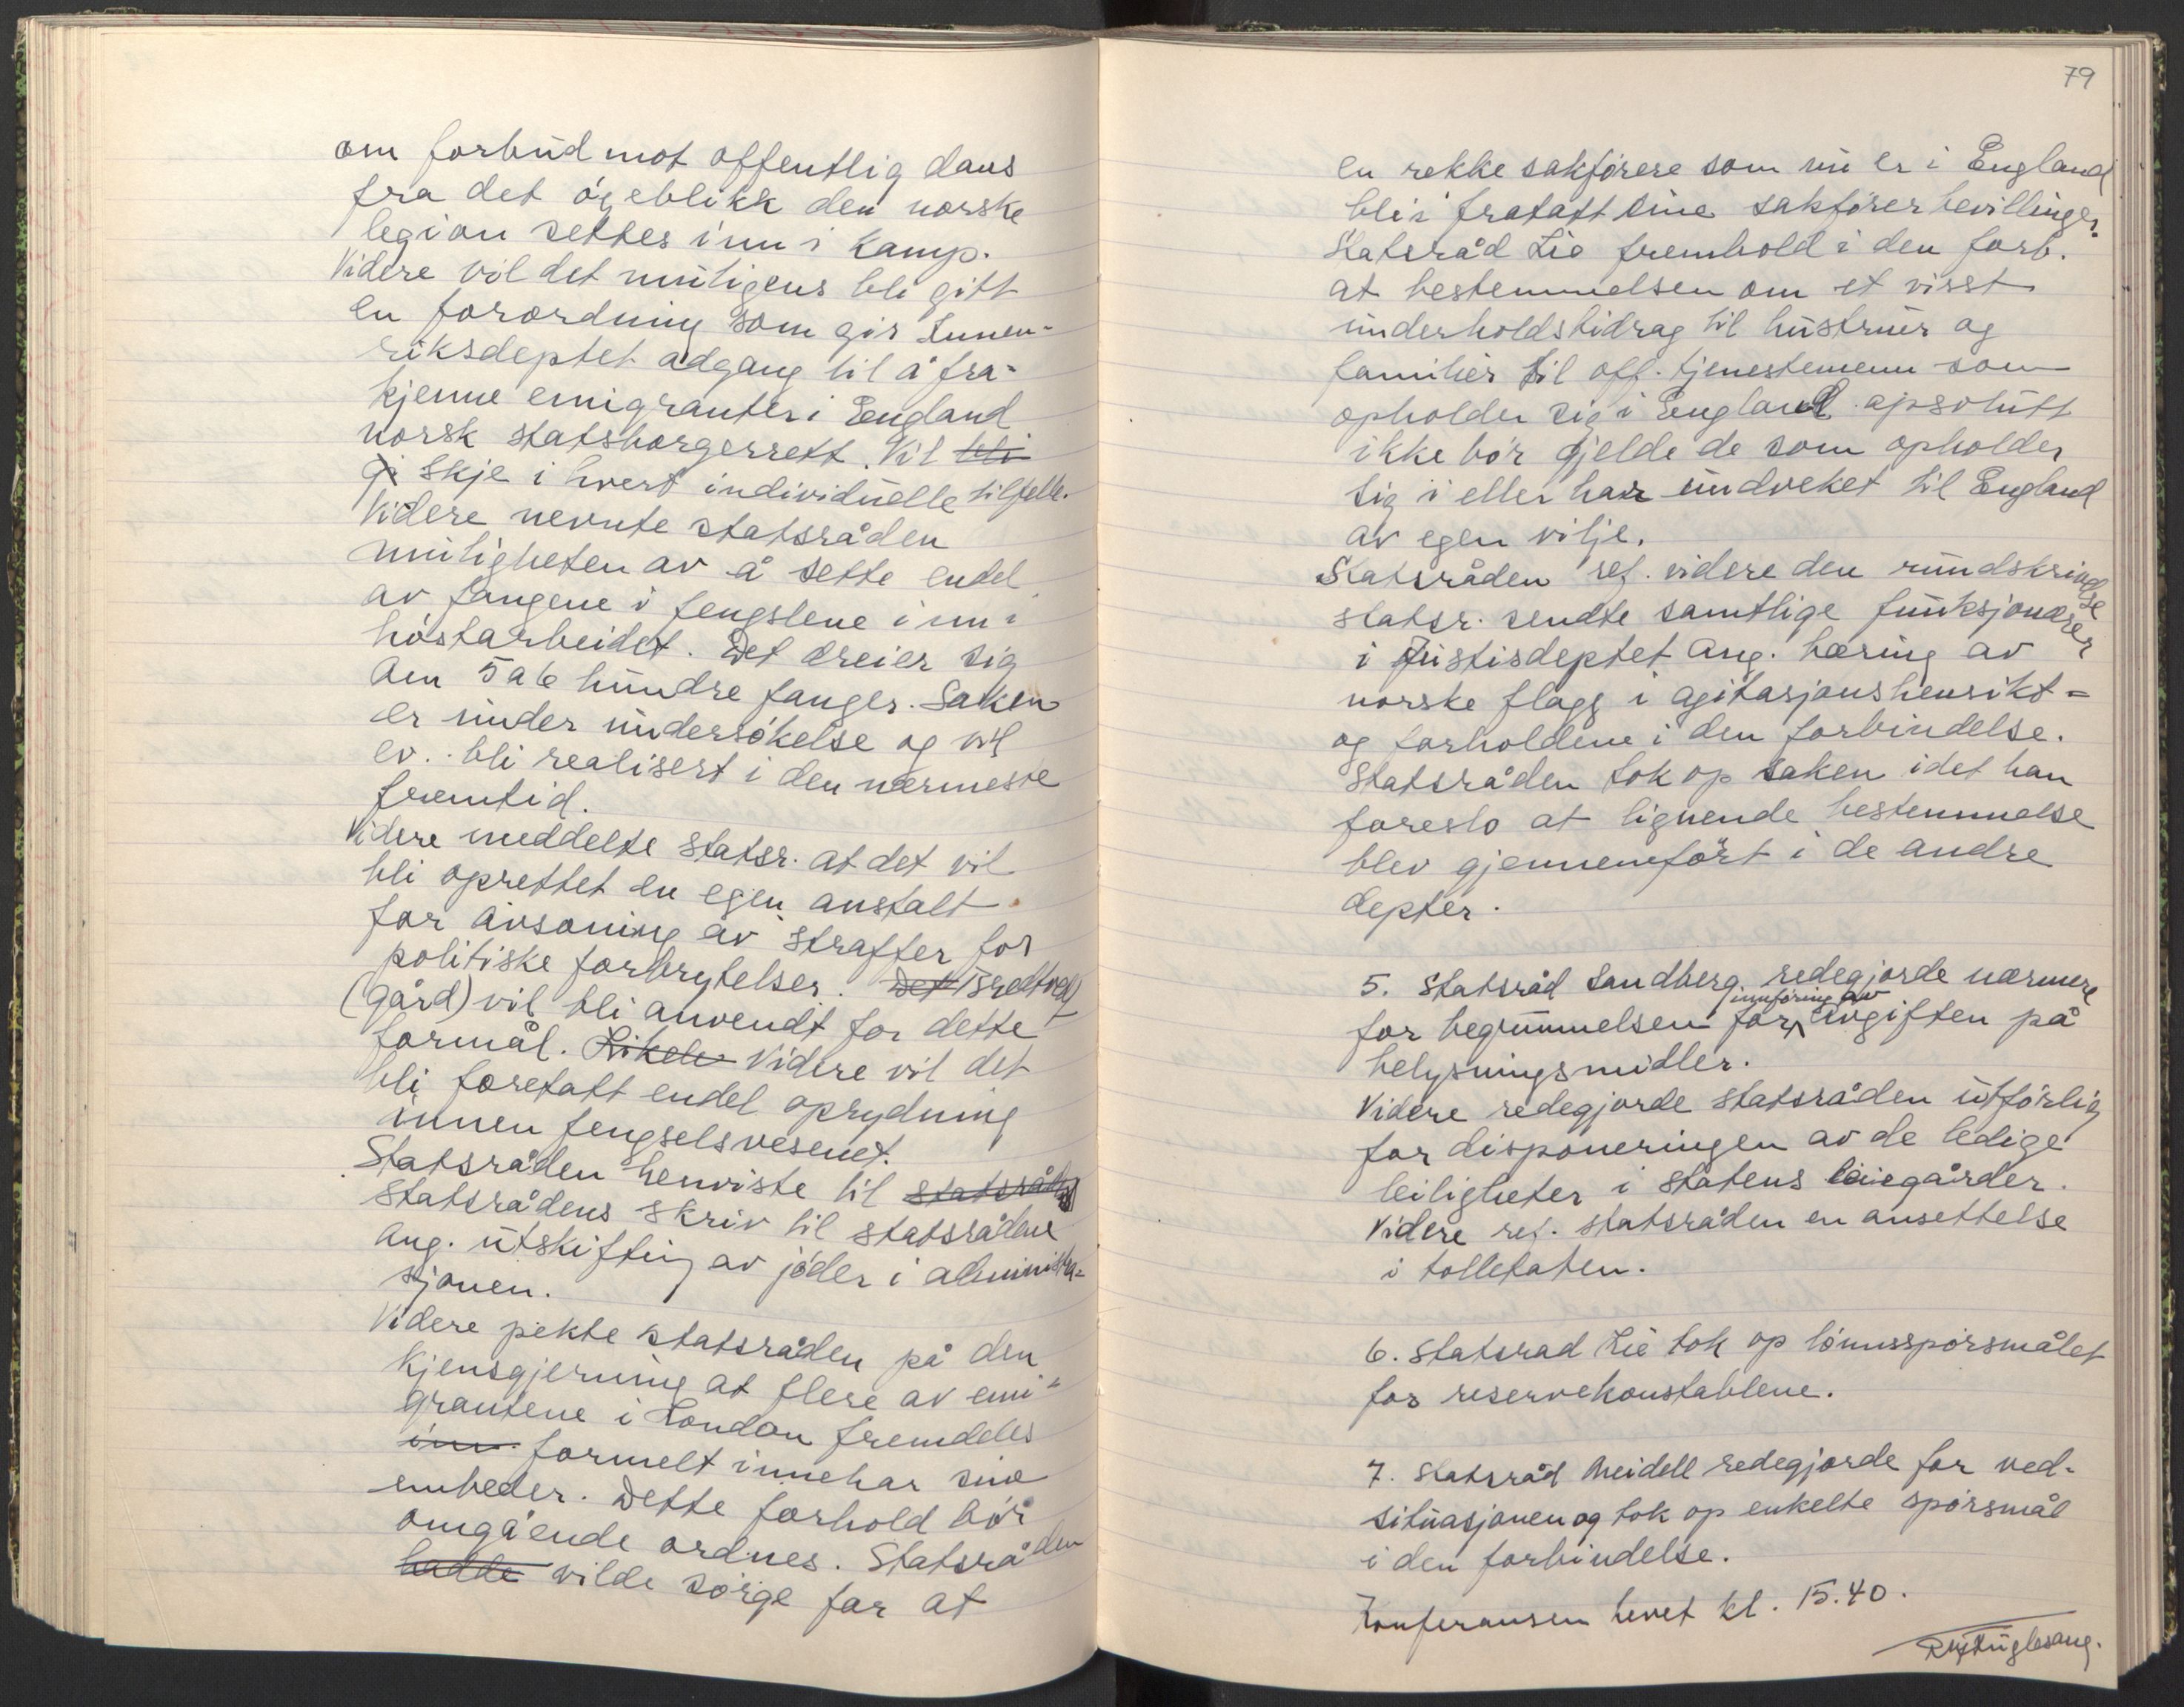 om forbud mot offentlig dans
fra det øieblikk den norske
legion settes inn i kamp.
Videre vil det muligens bli gitt
en forordning som gir Innen-
riksdeptet adgang til å fra-
kjenne emigranter i England
norsk statsborgerrett. Vil bli
gi skje i hvert individuelle tilfelle.
Videre nevnte statsråden
muligheten av å sette endel
av fangene i fengslene inn i
høstarbeidet. Det dreier sig
om 5 a 6 hundre fanger. Saken
er under undersøkelse og vil
ev. bli realisert i den nærmeste
fremtid.
Videre meddelte statsr. at det vil
bli oprettet en egen anstalt
for avsoning av straffer for
politiske forbrytelser. Det Bredtvedt
(gård) vil bli anvendt for dette
formål. Likele Videre vil det
bli foretatt endel oprydning
innen fengselsvesenet.
Statsråden henviste til statsråd
statsrådens skriv til statsrådene
ang. utskifting av jøder i administra-
sjonen.
Videre pekte statsråden på den
kjensgjerning at flere av emi-
grantene i London fremdeles
inn formelt innehar sine
embeder. Dette forhold bør
omgående ordnes. Statsråden
hadde vilde sørge for at
79
en rekke sakførere som nu er i England
blir fratatt sine sakførerbevillinger.
Statsråd Lie fremhold i den forb.
at bestemmelsen om et visst
underholdsbidrag til hustruer og
familier til off. tjenestemenn som
opholder sig i England apsolutt
ikke bør gjelde de som opholder
sig i eller har undveket til England
av egen vilje.
Statsråden ref. videre den rundskrivelse
statsr. sendte samtlige funksjonærer
i Justisdeptet ang. bæring av
norske flagg i agitasjonshensikt-
og forholdene i den forbindelse.
Statsråden tok op saken idet han
foreslo at lignende bestemmelse
blev gjennemført i de andre
depter.
5. Statsråd Sandberg redegjorde nærmere
for begrunnelsen for innføring av avgiften på
belysningsmidler.
Videre redegjorde statsråden utførlig
for disponeringen av de ledige
leiligheter i statens leiegårder.
Videre ref. statsråden en ansettelse
i tolletaten.
6. Statsrad Lie tok op lønnsspørsmålet
for reservekonstablene.
7. Statsråd Meidell redegjorde for ved-
situasjonen og tok op enkelte spørsmål
i den forbindelse.
Konferansen hevet kl. 15.40.
R Fuglesang.